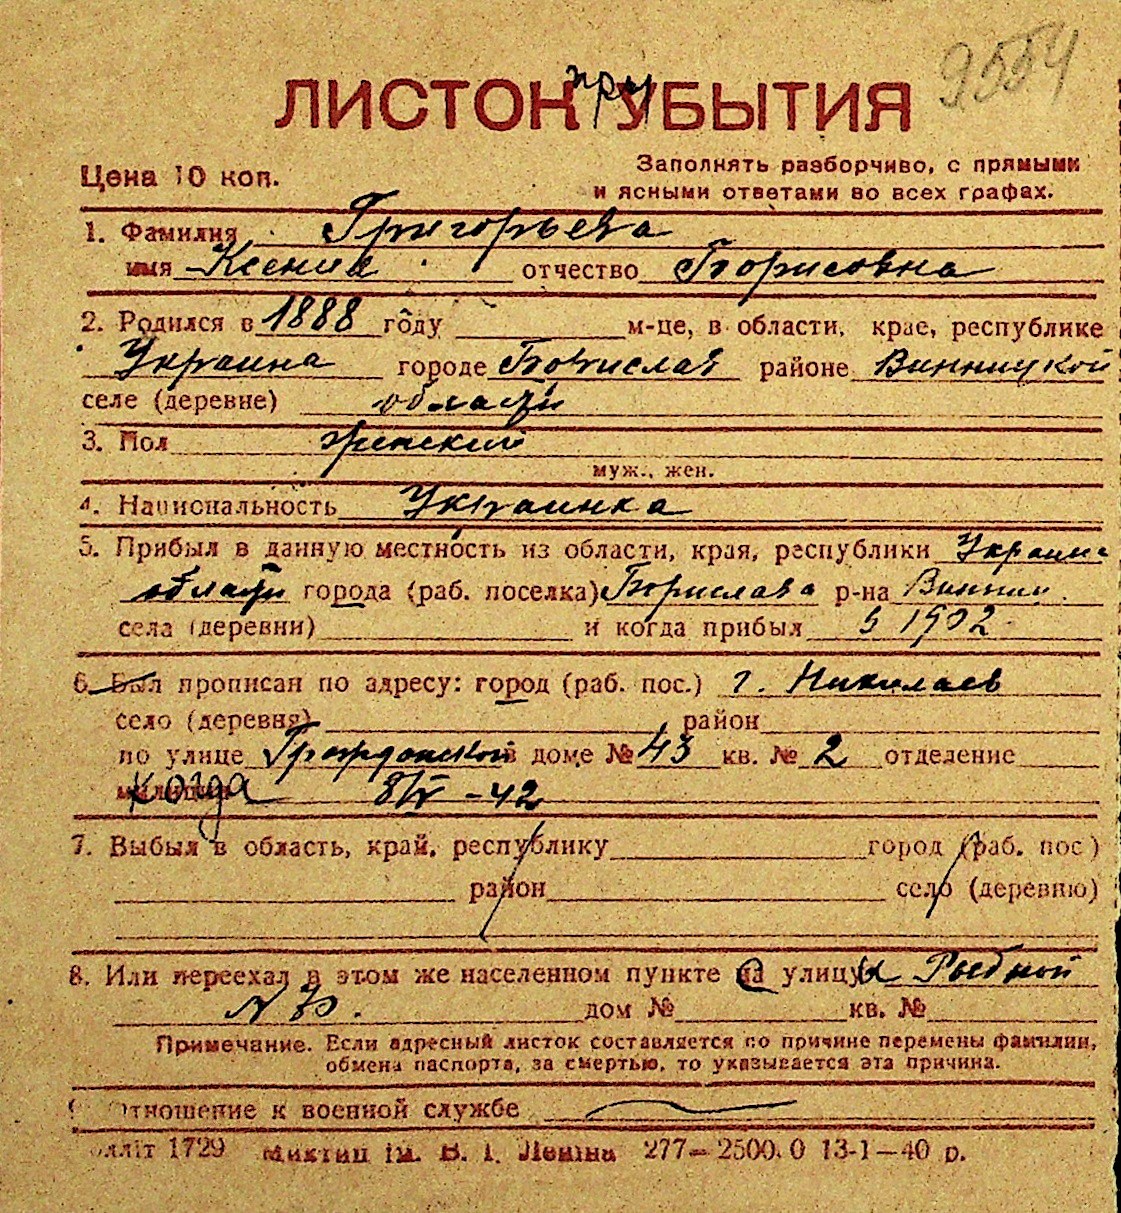 9554
ЛИСТОК при УБЫТИЯ
Цена 10 коп.
Заполнять разборчиво, с прямыми
и ясными ответами во всех графах.
1. Фамилия Григорьева
имя Ксения отчество Борисовна
2. Родился в 1888 году м-це, в области, крае, республике
Украина городе районе Винницкой
селе (деревне) области
3. Пол женский
муж., жен.
4. Национальность Украинка
5. Прибыл в данную местность из области, края, республики Украина
области города (раб. поселка) Борислава р-на Винниц.
села (деревни) и когда прибыл 1902
6. Был прописан по адресу: город (раб. пос.) г. Николаев
село (деревня) район
по улице Гражданской в доме № 43 кв. № 2 отделение
милиции когда 8/IV-42
7. Выбыл в область, край, республику город (раб. пос)
район село (деревню)
8. Или переехал в этом же населенном пункте на улицу Рыбной
дом № кв. №
Примечание. Если адресный листок составляется по причине перемены фамилии,
обмена паспорта, за смертью, то указывается эта причина.
Отношение к военной службе
лліт 1729 ім. В. І. Леніна 277—2500.0 13-1—40 р.